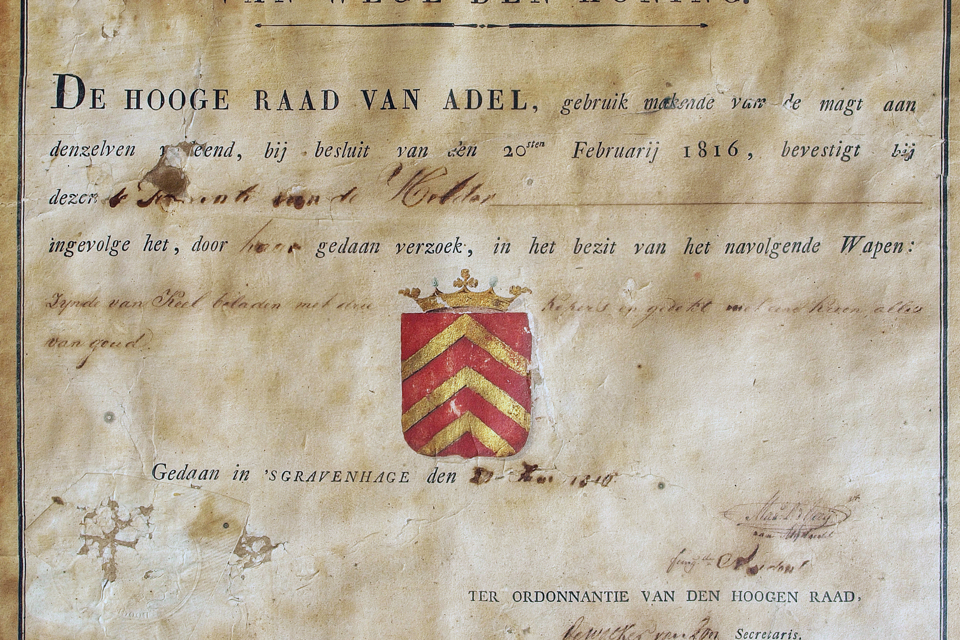 VAN WEGE DEN KONING.
DE HOOGE RAAD VAN ADEL, gebruik makende van de magt aan
denzelven verleend, bij besluit van den 20sten Februarij 1816, bevestigt bij
dezen de van de Helder
ingevolge het, door haar gedaan verzoek, in het bezit van het navolgende Wapen:
Zynde van Keel beladen met drie Kepers en gedekt met eene Kroon, alles
van goud.
Gedaan in 'SGRAVENHAGE den 1816
TER ORDONNANTIE VAN DEN HOOGEN RAAD,
Secretaris.